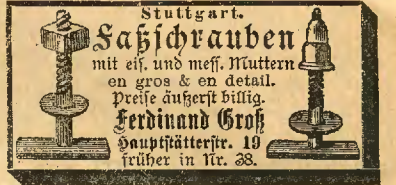 Stuttgart.
Faßschrauben
mit eis. und mess. Muttern
en gros & en detail.
Preise äußerst billig.
Ferdinand Groß
Hauptstätterstr. 19
früher in Nr. 38.